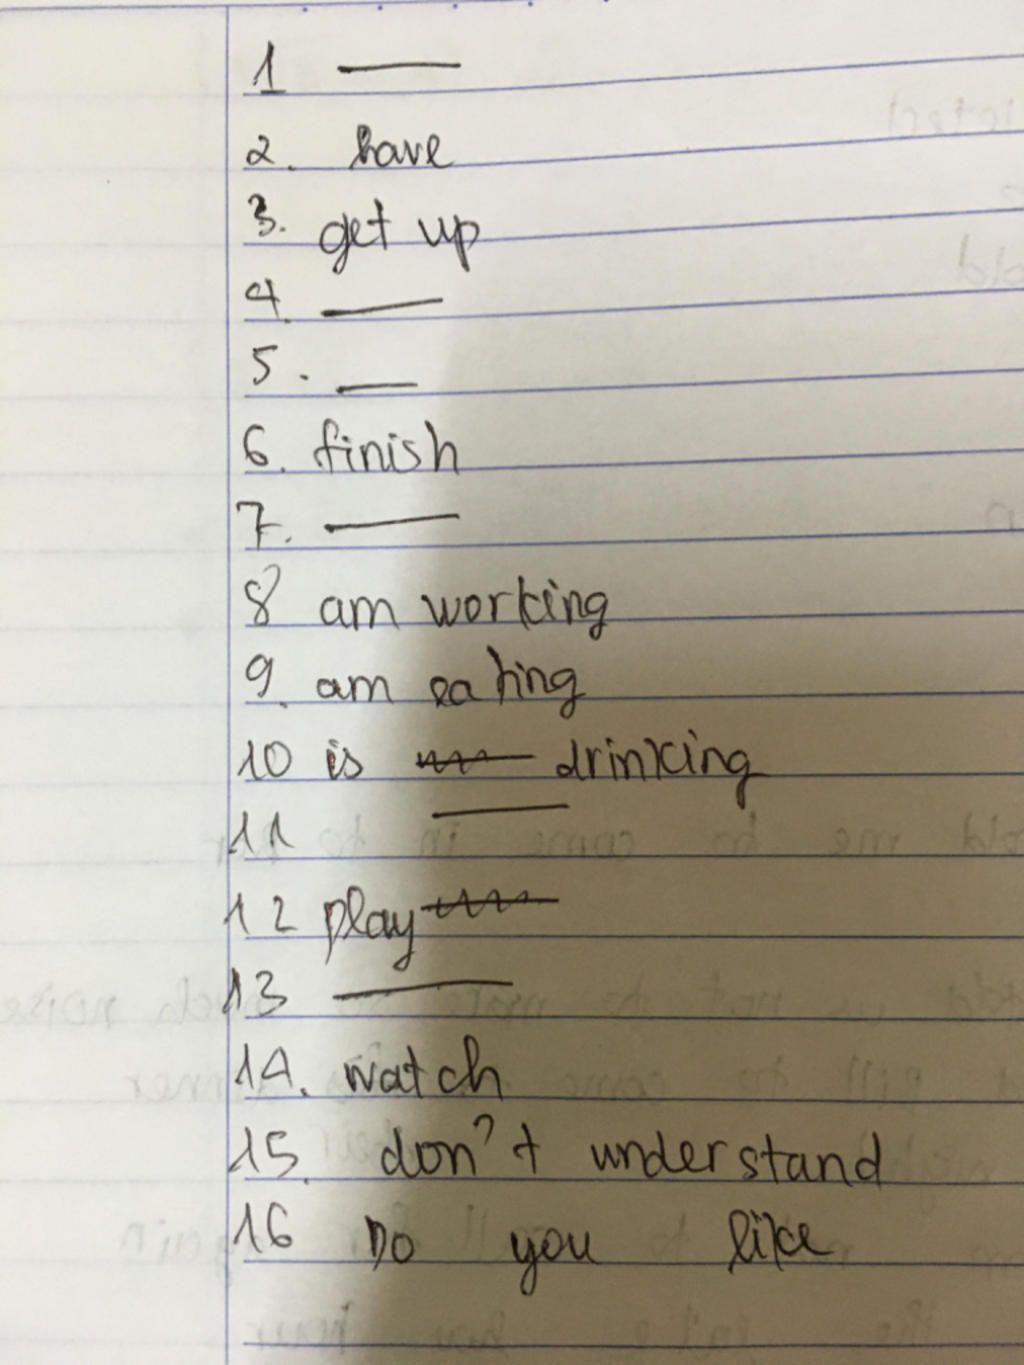 1 ——
2. have
3. get up
4. ——
5. ——
6. finish
7. ——
8 am working
9. am eating
10 is drinking
11 ——
12 play
13 ——
14. watch
15. don't understand
16 Do you like